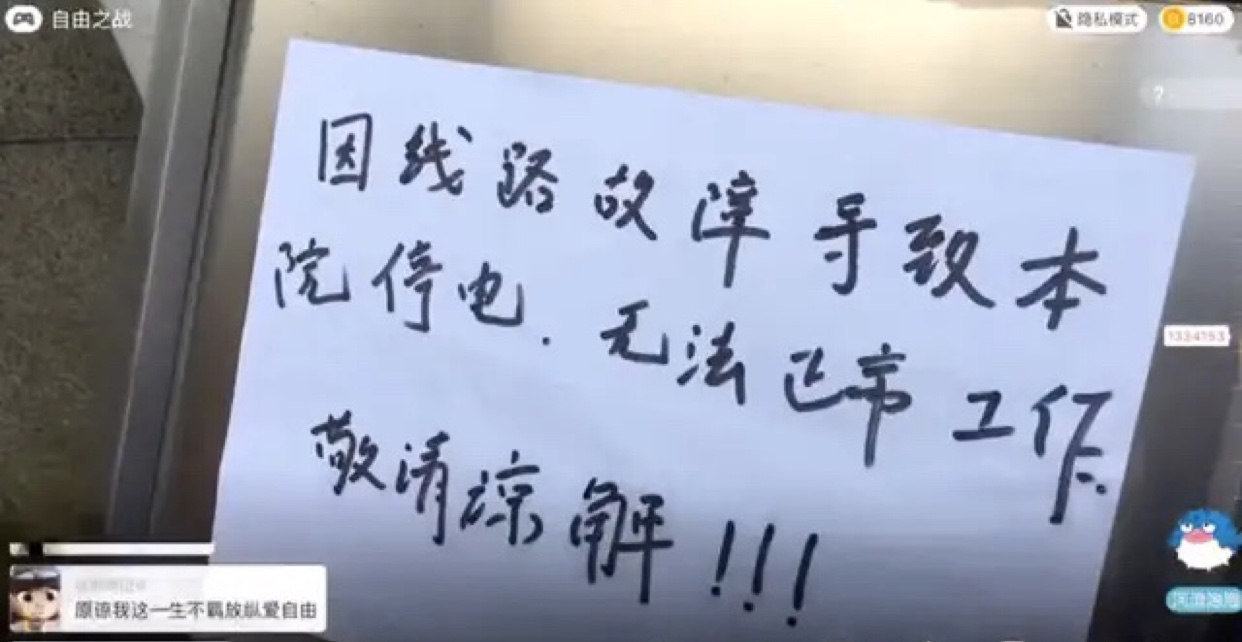 自由之战
隐私模式
8160
?
因线路故障导致本
院停电.无法正常工作.
敬请谅解!!!
1334153
原谅我这一生不羁放纵爱自由